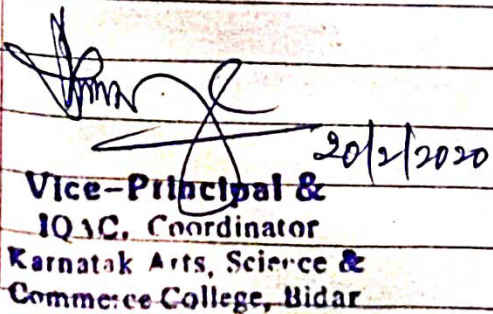 20/2/2020
Vice-Principal &
IQAC, Coordinator
Karnatak Arts, Science &
Commerce College, Bidar